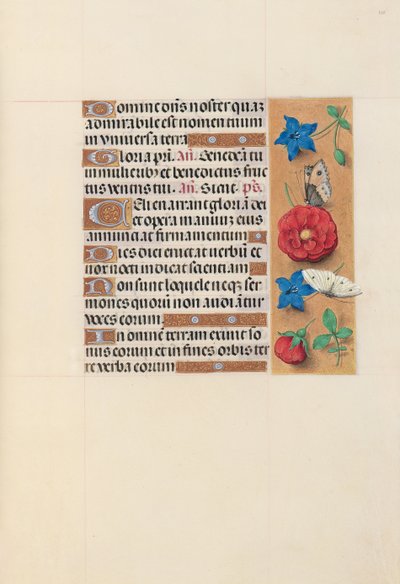 Domine dñs noster quaz
admirabile est nomen tuum
in vniuersa terra
Gloria pr̃i. Añ. Benedicta tu
in mulieribus et benedictus fruc
tus ventris tui. Añ. Sicut ps̃.
Celi enarrant gloriã dei
et opera manuuz eius
annunciat firmamentum
Dies diei eructat verbũ et
nox nocti indicat scientiam
Non sunt loquele neqz ser
mones quorũ non audiãtur
voces eorum
In omnẽ terram exiuit so
nus eorum et in fines orbis ter
re verba eorum